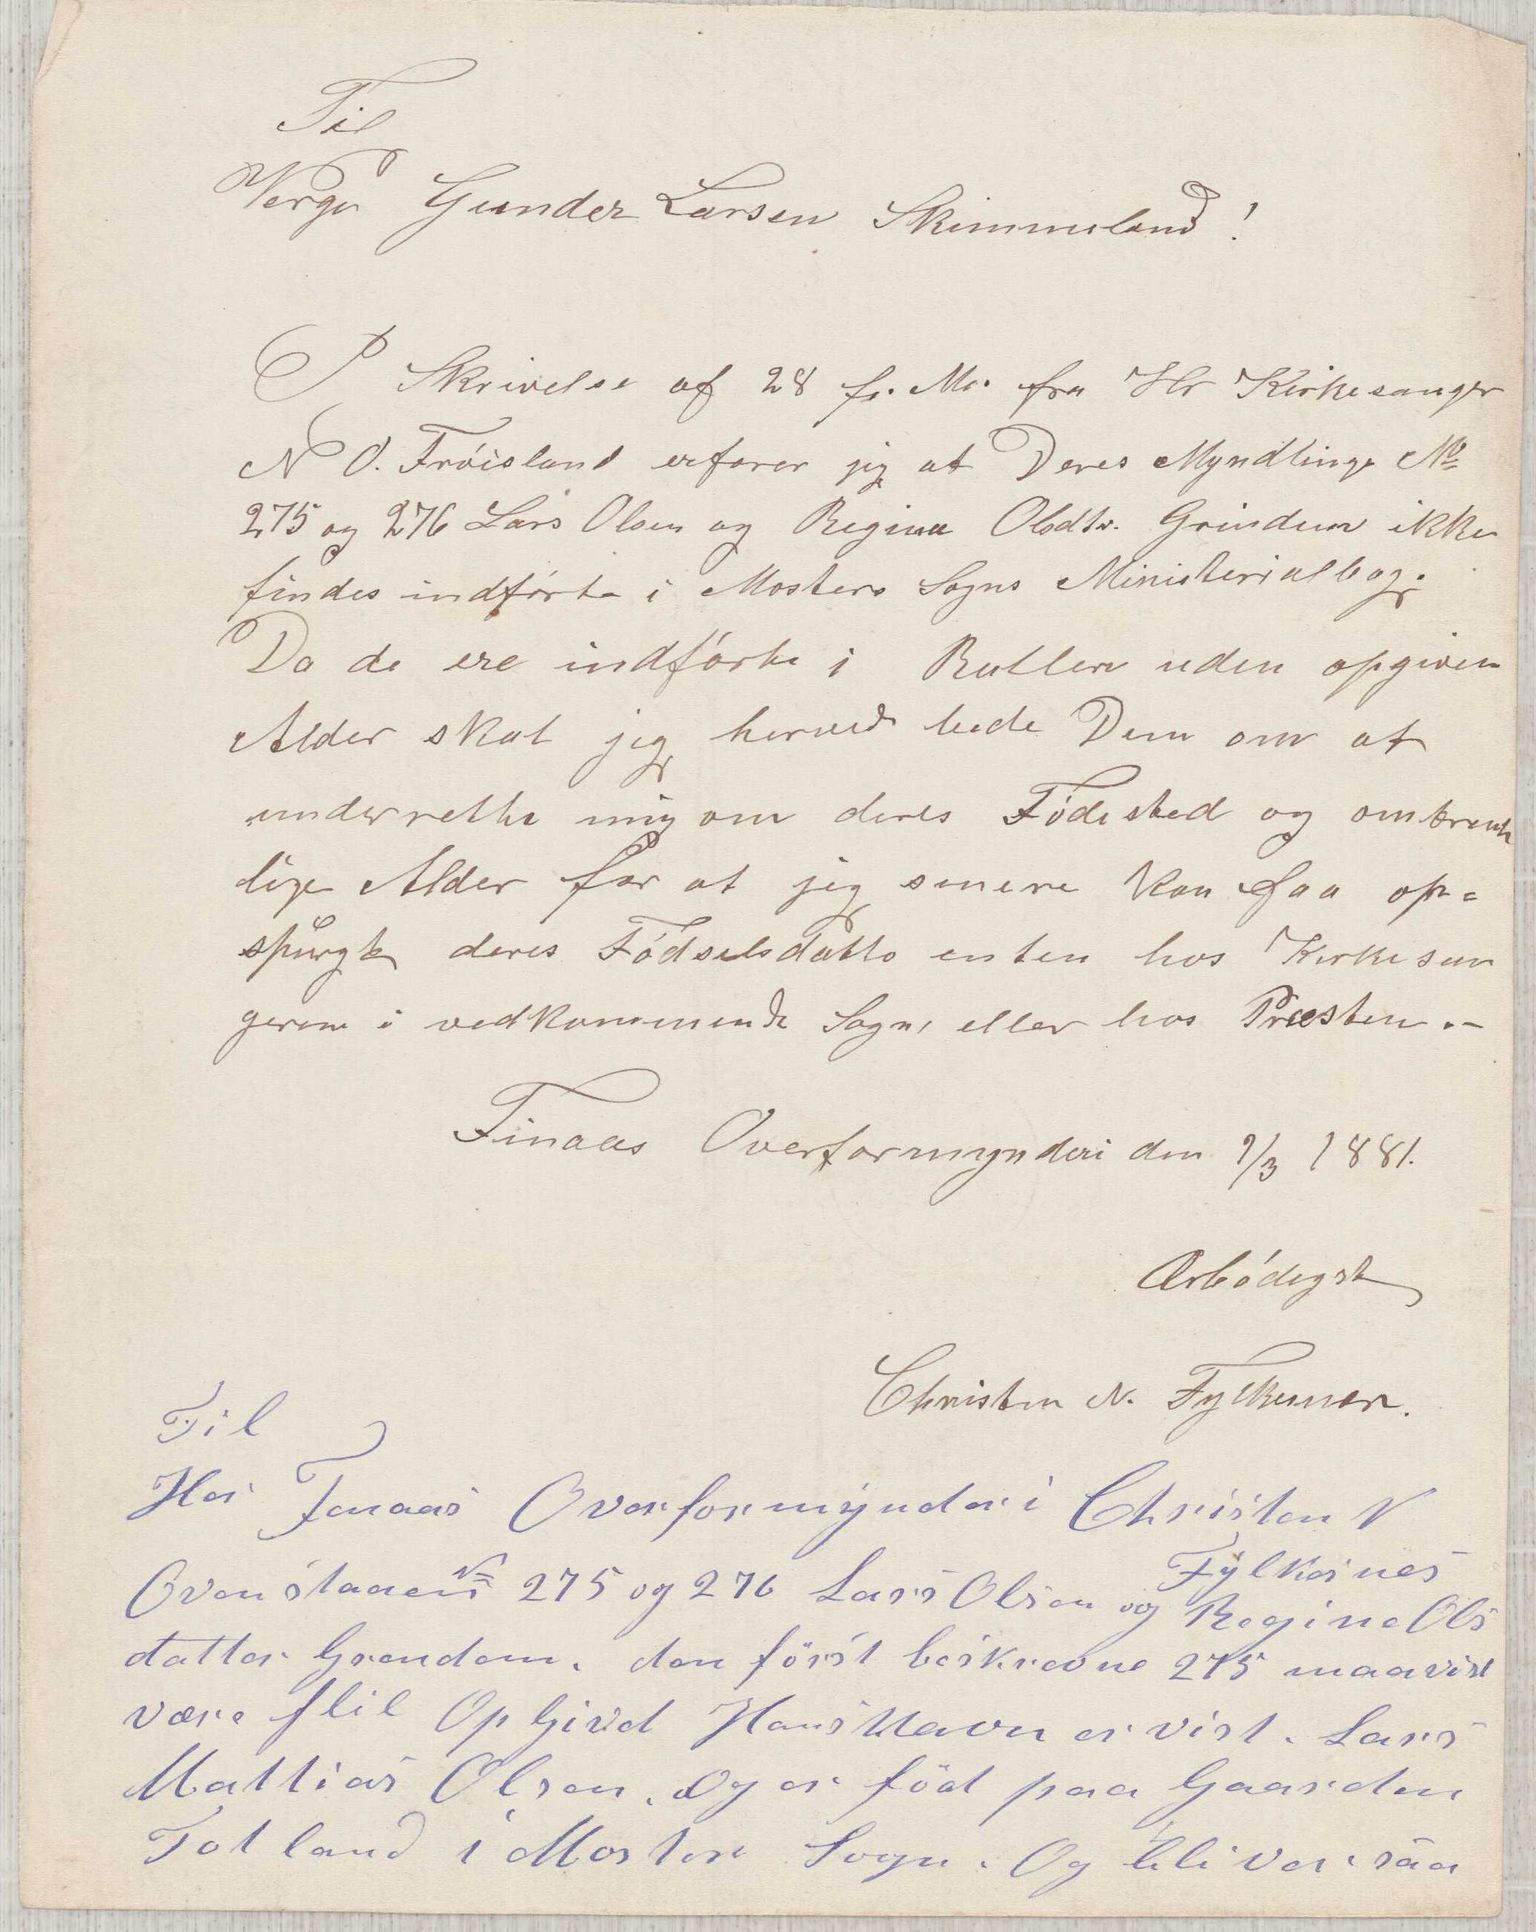 Til
Verge Gunder Larsen Skimmeland!
I Skrivelse af 28 f. M. fra Hr Kirkesanger
N O. Fróisland erfarer jeg at Deres Myndlinge No
275 og 276 Lars Olsen og Regina Olsdtr. Grindem ikke
findes indførte i Mosters Sogns Ministerialbog.
Da de ere indførte i Rullen uden opgiven
Alder skal jeg herved bede Dem om at
underrette mig om deres Fódested og omtrent
lige Alder for at jeg senere kan faa op=
spurgte deres Fódselsdatto enten hos Kirkesan
geren i vedkommende Sogn, eller hos Præsten.-
Finaas Overformynderi den 1/3 1881.
Ærbódigst
Christen N. Fylkesnes.
Til
Her Fenaas Overformynderi Christen N
Fylkesnes
Ovenstaaende No 275 og 276 Lars Olsen og Regine Ols
datter Grendem. den först beskrevne 275 maa vist
være flil OpGived Hans Navn er vist. Lars
Mattias Olsen. og er föd paa Gaarden
Totland i Moster Sogn. Og bliver saa